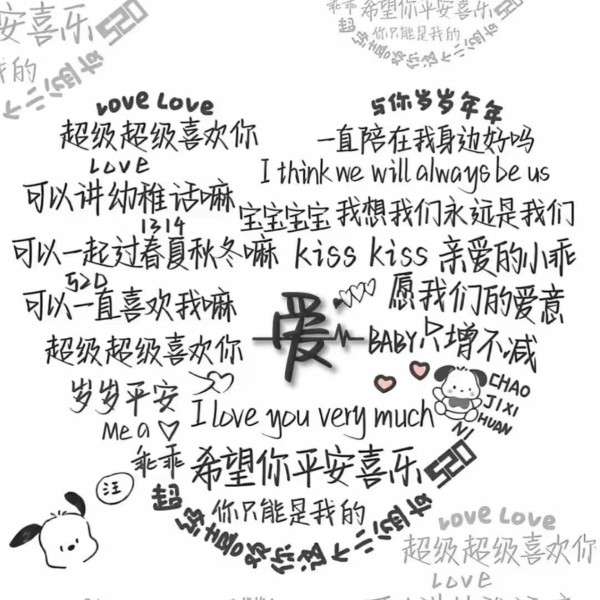 安喜乐520
的
希望你平安喜乐520
你只能是我的
Love Love
超级超级喜欢你
LOVE
可以讲幼稚话嘛
1314
可以一起过春夏秋冬嘛
520
可以一直喜欢我嘛
超级超级喜欢你
岁岁平安
Me a
乖乖
与你岁岁年年
一直陪在我身边好吗
I think we will always be us
宝宝宝宝 我想我们永远是我们
kiss kiss 亲爱的小乖
愿我们的爱意
BABY 只增不减
爱
CHAO
JI XI
HUAN
NI
I love you very much
希望你平安喜乐
520
你只能是我的
汪
Love Love
超级超级喜欢你
LOVE